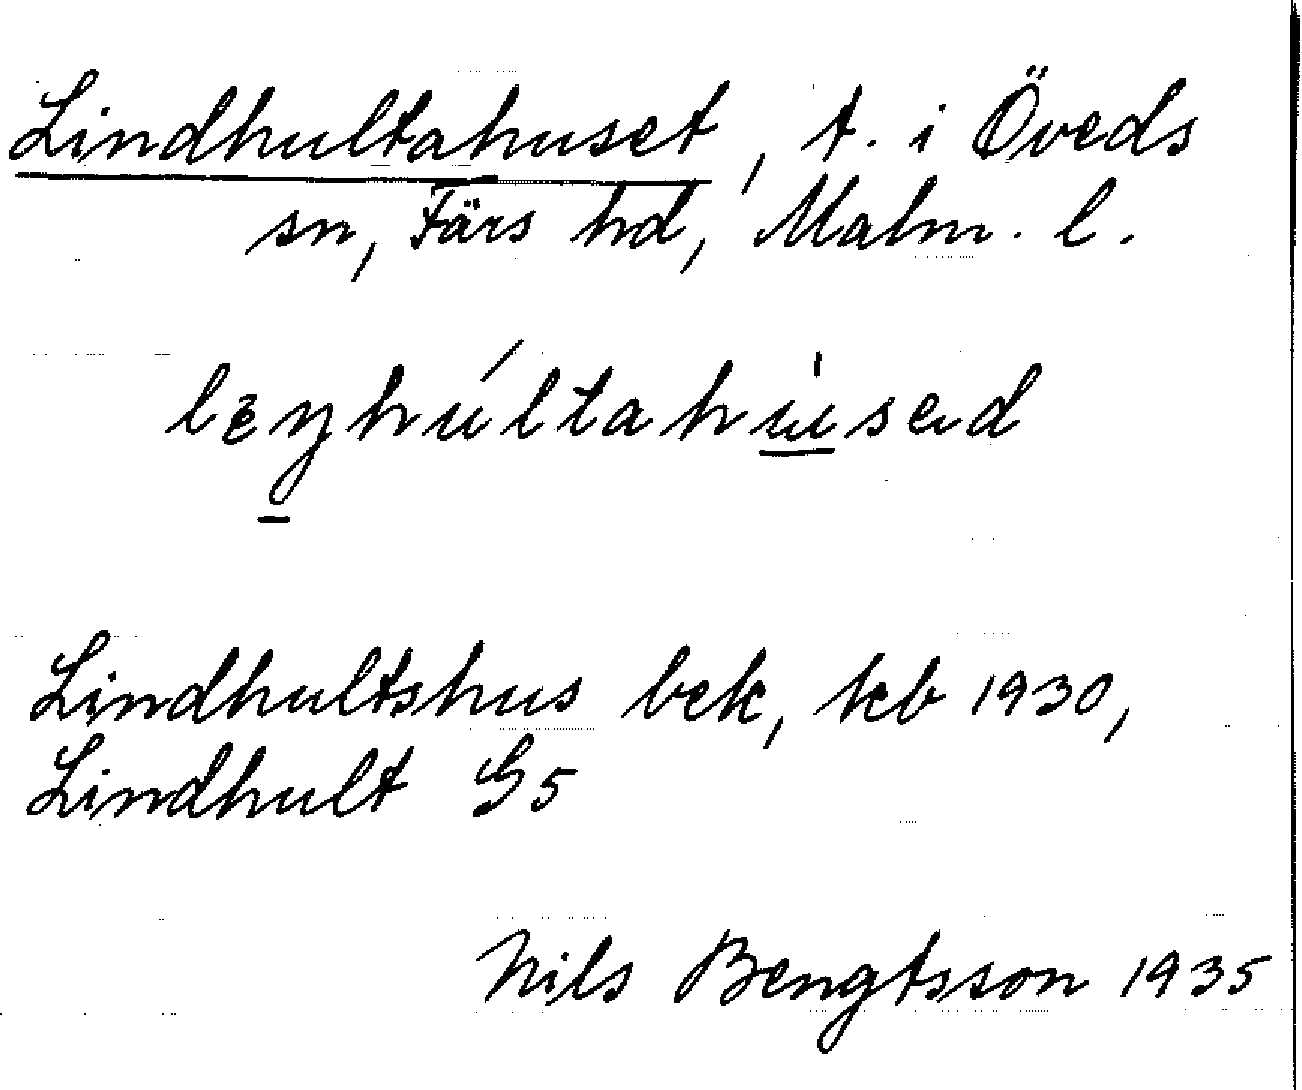 Lindhultahuset, t. i Öveds
sn, Färs hd, Malm. l.
Lindhultshus bek, kb 1930,
Lindhult G5
Nils Bengtsson 1935